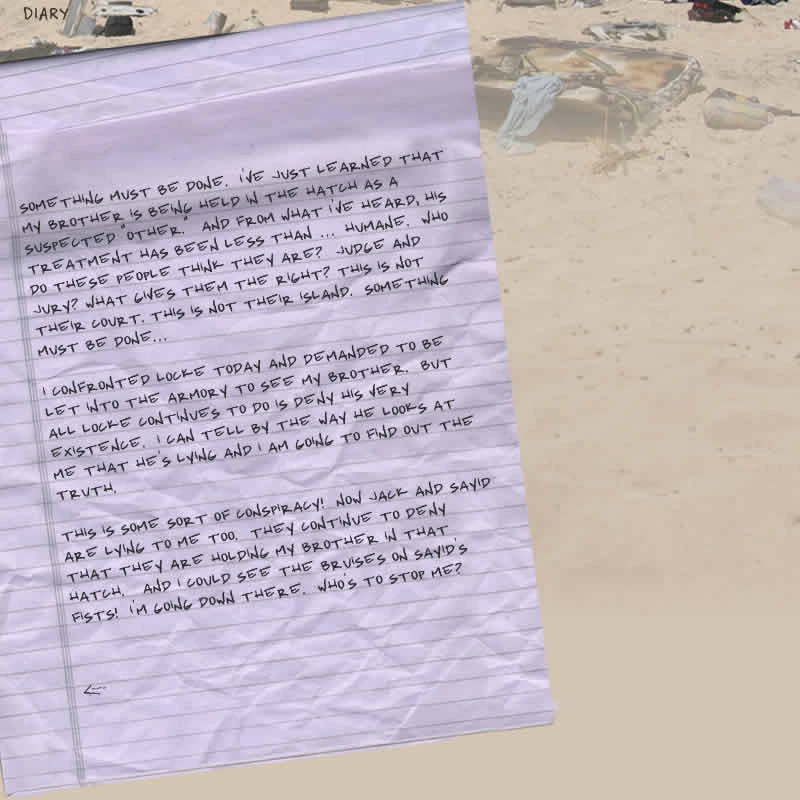 DIARY
SOMETHING MUST BE DONE. I'VE JUST LEARNED THAT
MY BROTHER IS BEING HELD IN THE HATCH AS A
SUSPECTED "OTHER." AND FROM WHAT I'VE HEARD, HIS
TREATMENT HAS BEEN LESS THAN ... HUMANE. WHO
DO THESE PEOPLE THINK THEY ARE? JUDGE AND
JURY? WHAT GIVES THEM THE RIGHT? THIS IS NOT
THEIR COURT. THIS IS NOT THEIR ISLAND. SOMETHING
MUST BE DONE...
I CONFRONTED LOCKE TODAY AND DEMANDED TO BE
LET INTO THE ARMORY TO SEE MY BROTHER. BUT
ALL LOCKE CONTINUES TO DO IS DENY HIS VERY
EXISTENCE. I CAN TELL BY THE WAY HE LOOKS AT
ME THAT HE'S LYING AND I AM GOING TO FIND OUT THE
TRUTH.
THIS IS SOME SORT OF CONSPIRACY! NOW JACK AND SAYID
ARE LYING TO ME TOO. THEY CONTINUE TO DENY
THAT THEY ARE HOLDING MY BROTHER IN THAT
HATCH. AND I COULD SEE THE BRUISES ON SAYID'S
FISTS! I'M GOING DOWN THERE. WHO'S TO STOP ME?